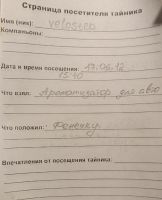 Страница посетителя тайника
Имя (ник): velosteo
Компаньоны:
Дата и время посещения: 17.06.12
15:40
Что взял: Ароматизатор для авто
Что положил: Фенечку
Впечатления от посещения тайника: